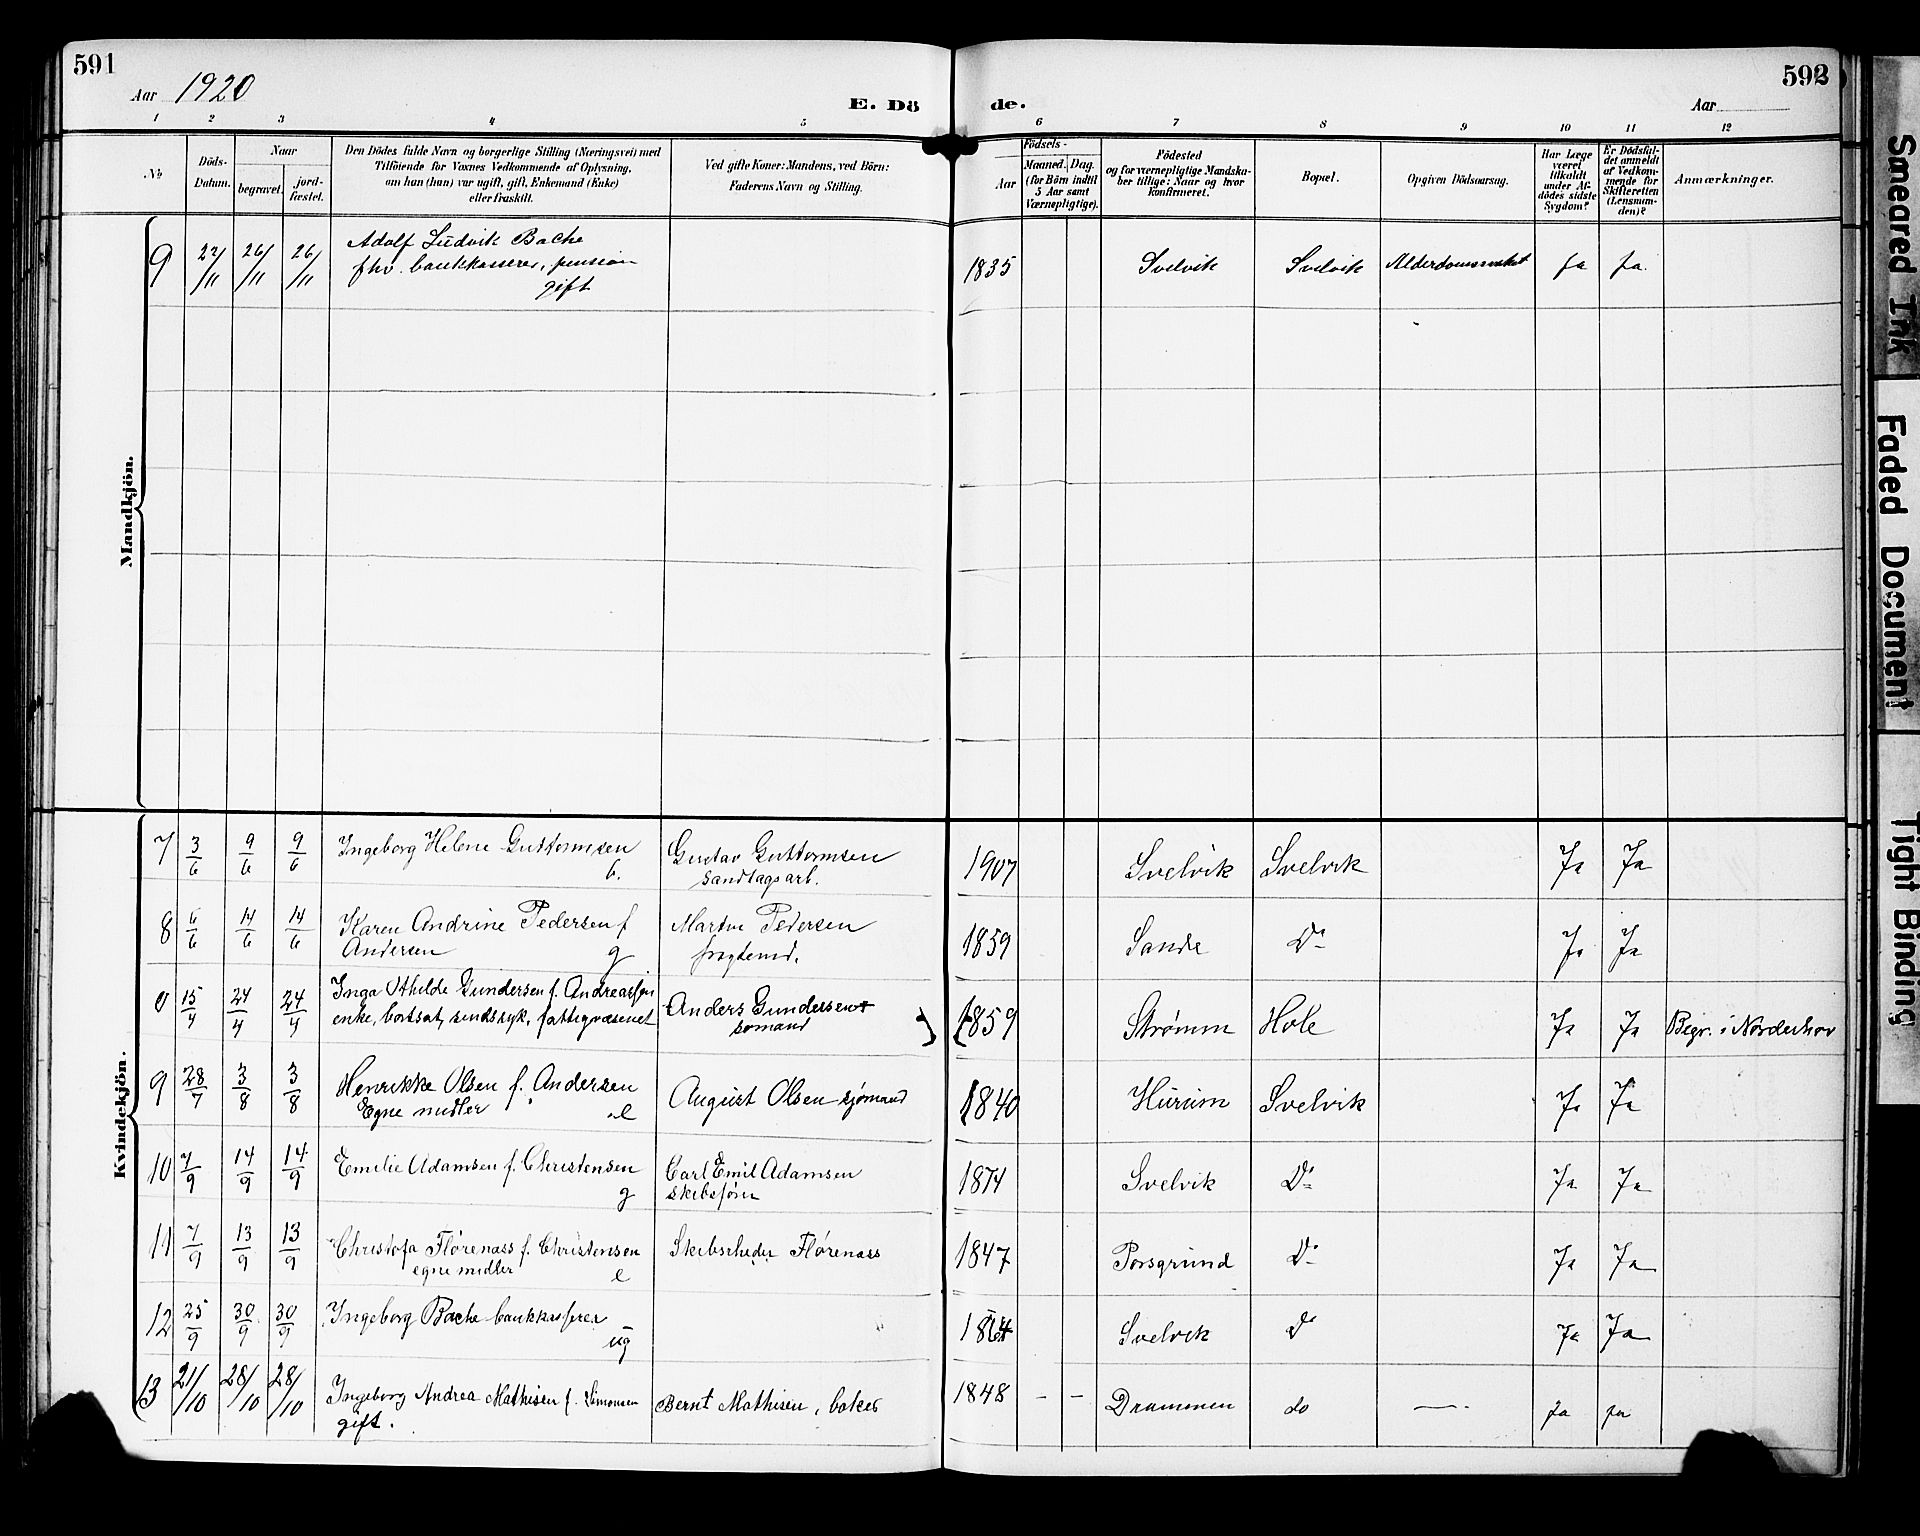 591
Aar 1920
E. Dö
de.
592
Aar
1 2 3 4 5 6 7 8 9 10 11 12
No
Döds-
Datum.
Naar
begravet.
jord-
fæstet.
Den Dödes fulde Navn og borgerlige Stilling (Næringsvei) med
Tilföiende for Voxnes Vedkommende af Oplysning,
om han (hun) var ugift, gift, Enkemand (Enke)
eller fraskilt.
Ved gifte Koner: Mandens, ved Börn:
Faderens Navn og Stilling.
Födsels-
Aar
Maaned. Dag.
(for Börn indtil
5 Aar samt
Værnepligtige).
Födested
og for værnepligtige Mandska-
ber tillige: Naar og hvor
konfirmeret.
Bopæl.
Opgiven Dödsaarsag.
Har Læge
været
tilkaldt
under Af-
dödes sidste
Sygdom?
Er Dödsfal-
det anmeldt
af Vedkom-
mende for
Skifteretten
(Lensman-
den)?
Anmærkninger.
Mandkjön.
9 22/11 26/11 26/11 Adolf Ludvik Bache
fhv. bankkasserer, pension
gift
1835 Svelvik Svelvik Alderdomssvakhet ja ja.
Kvindekjön.
7 3/6 9/6 9/6 Ingeborg Helene Guttormsen
b.
Gustav Guttormsen
sandtagsarb.
1907 Svelvik Svelvik Ja Ja
8 6/6 14/6 14/6 Karen Andrine Pedersen f
Andersen g
Martin Pedersen
fragtemd.
1859 Sande Do Ja Ja
15/4 24/4 24/4 Inga Othilde Gundersen f. Andreassen
enke, bortsat, sindssyk, fattigvæsenet
Anders Gundersen
sømand
1859 Strømm Hole Ja Ja Begr. i Norderhov
9 28/7 3/8 3/8 Henrikke Olsen f. Andersen
Egne midler e
August Olsen sjømand
1840 Hurum Svelvik Ja Ja
10 7/9 14/9 14/9 Emilie Adamsen f. Christensen
g
Carl Emil Adamsen
skibsfører
1874 Svelvik Do Ja Ja
11 7/9 13/9 13/9 Christofa Flørenass f. Christensen
egne midler e
Skibsrheder Flørenass
1847 Porsgrund Do Ja Ja
12 25/9 30/9 30/9 Ingeborg Bache bankkasserer
ug
Svelvik Do Ja Ja
13 21/10 28/10 28/10 Ingeborg Andrea Mathisen f. Simonsen
gift.
Bernt Mathisen, baker
1848 - - Drammen do - ja ja
Smeared Ink
Faded Document
Tight Binding